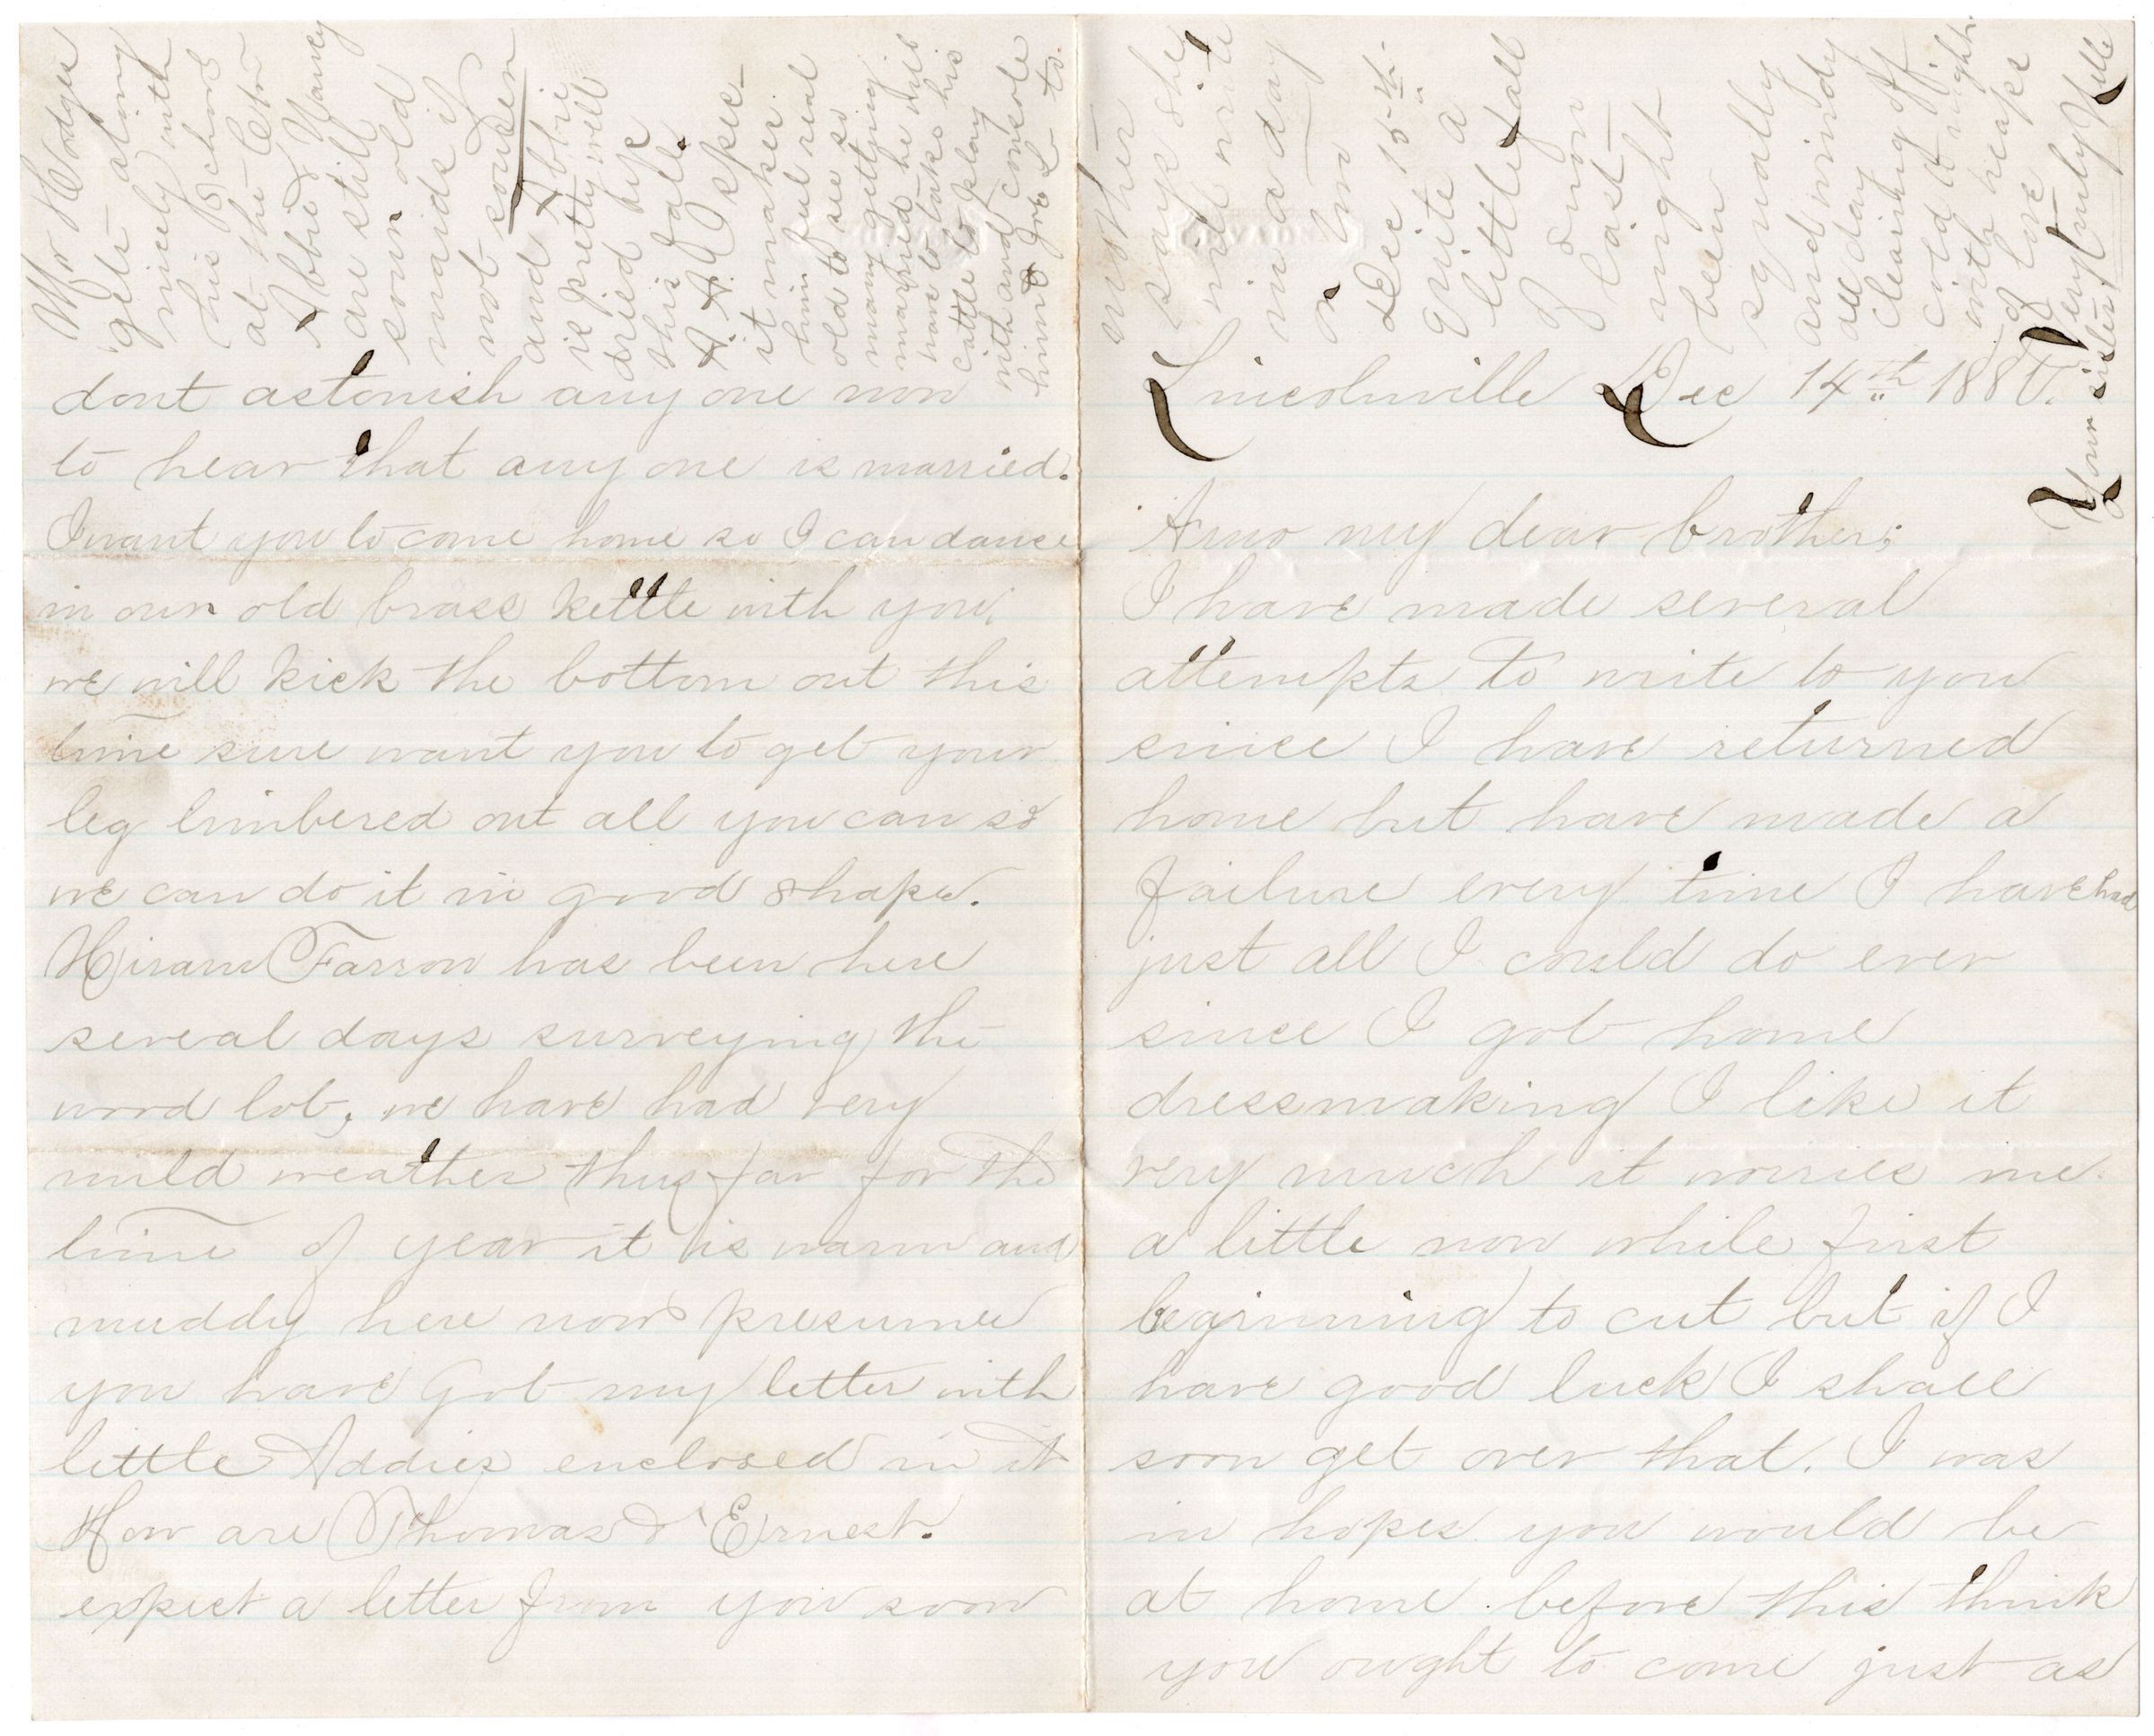 Lincolnville Dec 14th 1880.
Amo my dear brother;
I have made several
attempts to write to you
since I have returned
home but have made a
failure every time I have had
just all I could do ever
since I got home
dressmaking I like it
very much it worries me
a little now while first
beginning to cut but if I
have good luck I shall
soon get over that. I was
in hopes you would be
at home before this think
you ought to come just as
dont astonish any one now
to hear that any one is married.
I want you to come home so I can dance
in our old brass kettle with you,
we will kick the bottom out this
time sure want you to get your
leg limbered out all you can so
we can do it in good shape.
Hiram Farrow has been here
several days surveying the
wood lot, we have had very
mild weather thus far for the
time of year it is warm and
muddy here now presume
you have got my letter with
little Addies enclosed in it
How are Thomas & Ernest.
expect a letter from you soon
Mr Hodges
gets along
nicely with
his School
at the Cetr
Abbie & Nancy
are still
sour old
maids if
not sourer
and Abbie
is pretty well
dried up
this fall.
A. A. Q spec-
it makes
him feel real
old to see so
many getting
married he will
have to take his
cattle to play
with and console
him
mother
says she
will write
in a day
or two
Dec 15th
Quite a
little fall
of snow
last
night
been
squally
and windy
all day
clearing off
cold to night
with heaps
of love
Very truly
Your sister